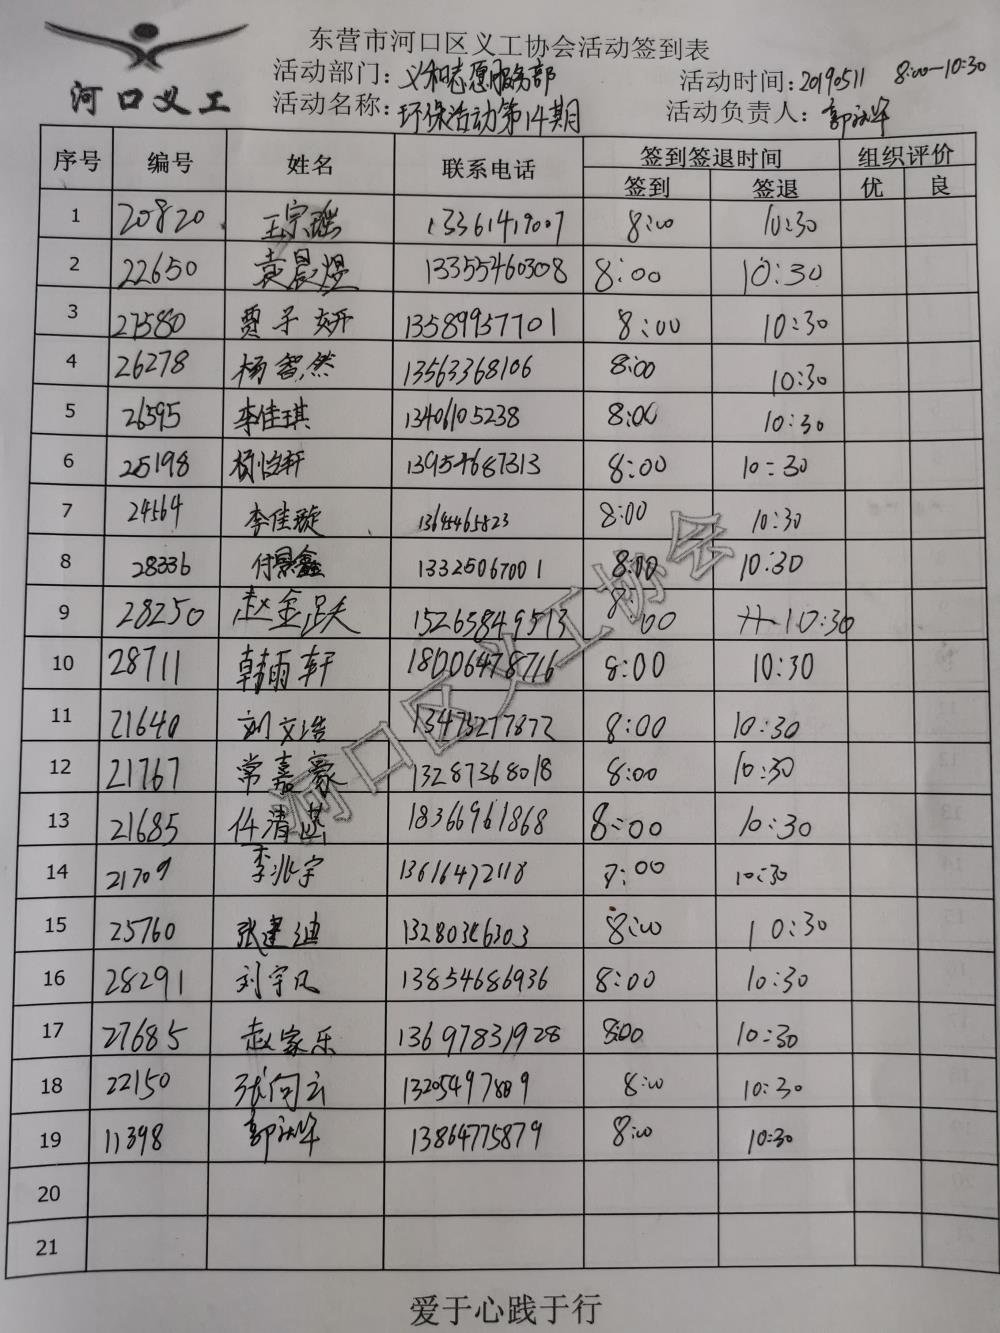 东营市河口区义工协会活动签到表
河口义工
活动部门：义和志愿服务部
活动时间：20190511 8:00—10:30
活动名称：环保活动第14期
活动负责人：
序号 编号 姓名 联系电话 签到签退时间 组织评价
签到 签退 优 良
1 20820 王宗瑶 13361419007 8:00 10:30
2 22650 袁晨煜 13355460308 8:00 10:30
3 27580 贾子妍 13589937701 8:00 10:30
4 26278 杨智然 13563368106 8:00 10:30
5 26595 李佳琪 13406105238 8:00 10:30
6 25198 杨怡轩 13954687313 8:00 10:30
7 24564 李佳璇 13645465823 8:00 10:30
8 28336 付景鑫 13325067001 8:00 10:30
9 28250 赵金跃 15265849513 8:00 10:30
10 28711 韩雨轩 18006478716 8:00 10:30
11 21640 刘文浩 13475277872 8:00 10:30
12 21767 常嘉豪 13287368018 8:00 10:30
13 21685 任清 18366961868 8:00 10:30
14 21709 李兆宇 13616472118 8:00 10:30
15 25760 张建迪 13280346303 8:00 10:30
16 28291 刘宇凡 13854686936 8:00 10:30
17 27685 赵家乐 13697831928 8:00 10:30
18 22150 张向云 13205497889 8:00 10:30
19 11398 13864775879 8:00 10:30
20
21
河口区义工协会
爱于心践于行